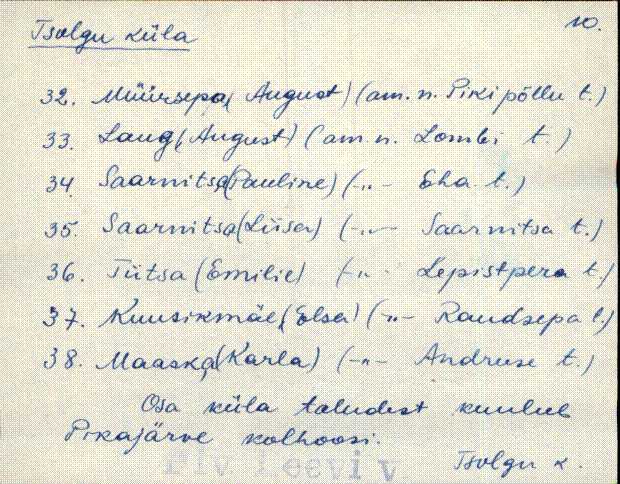 10.
Tsolgu küla
32. Müürsepa (August) (am. n. Pikipõllu t.)
33. Laug (August) (am. n. Lombi t.)
34. Saarnitsa (Pauline) (-„- Eha t.)
35. Saarnitsa (Liisa) (-„- Saarnitsa t.)
36. Tiitsa (Emilie) (-„- Lepistpera t.)
37. Kuusikmäe (Elsa) (-„- Raudsepa t)
38. Maaska (Karla) (-„- Andruse t.)
Osa küla taludest kuulub
Pikajärve kolhoosi.
Elv Leevi v
Tsolgu k.